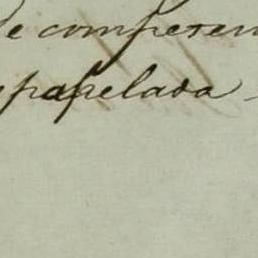 de competen
papelada -